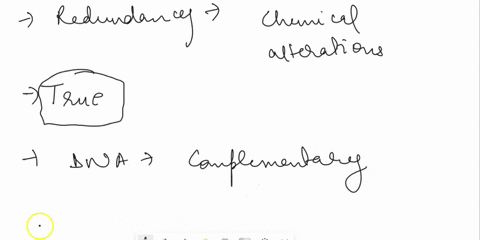 → Redundancy → Chemical
alterations
→ True
→ DNA → Complementary